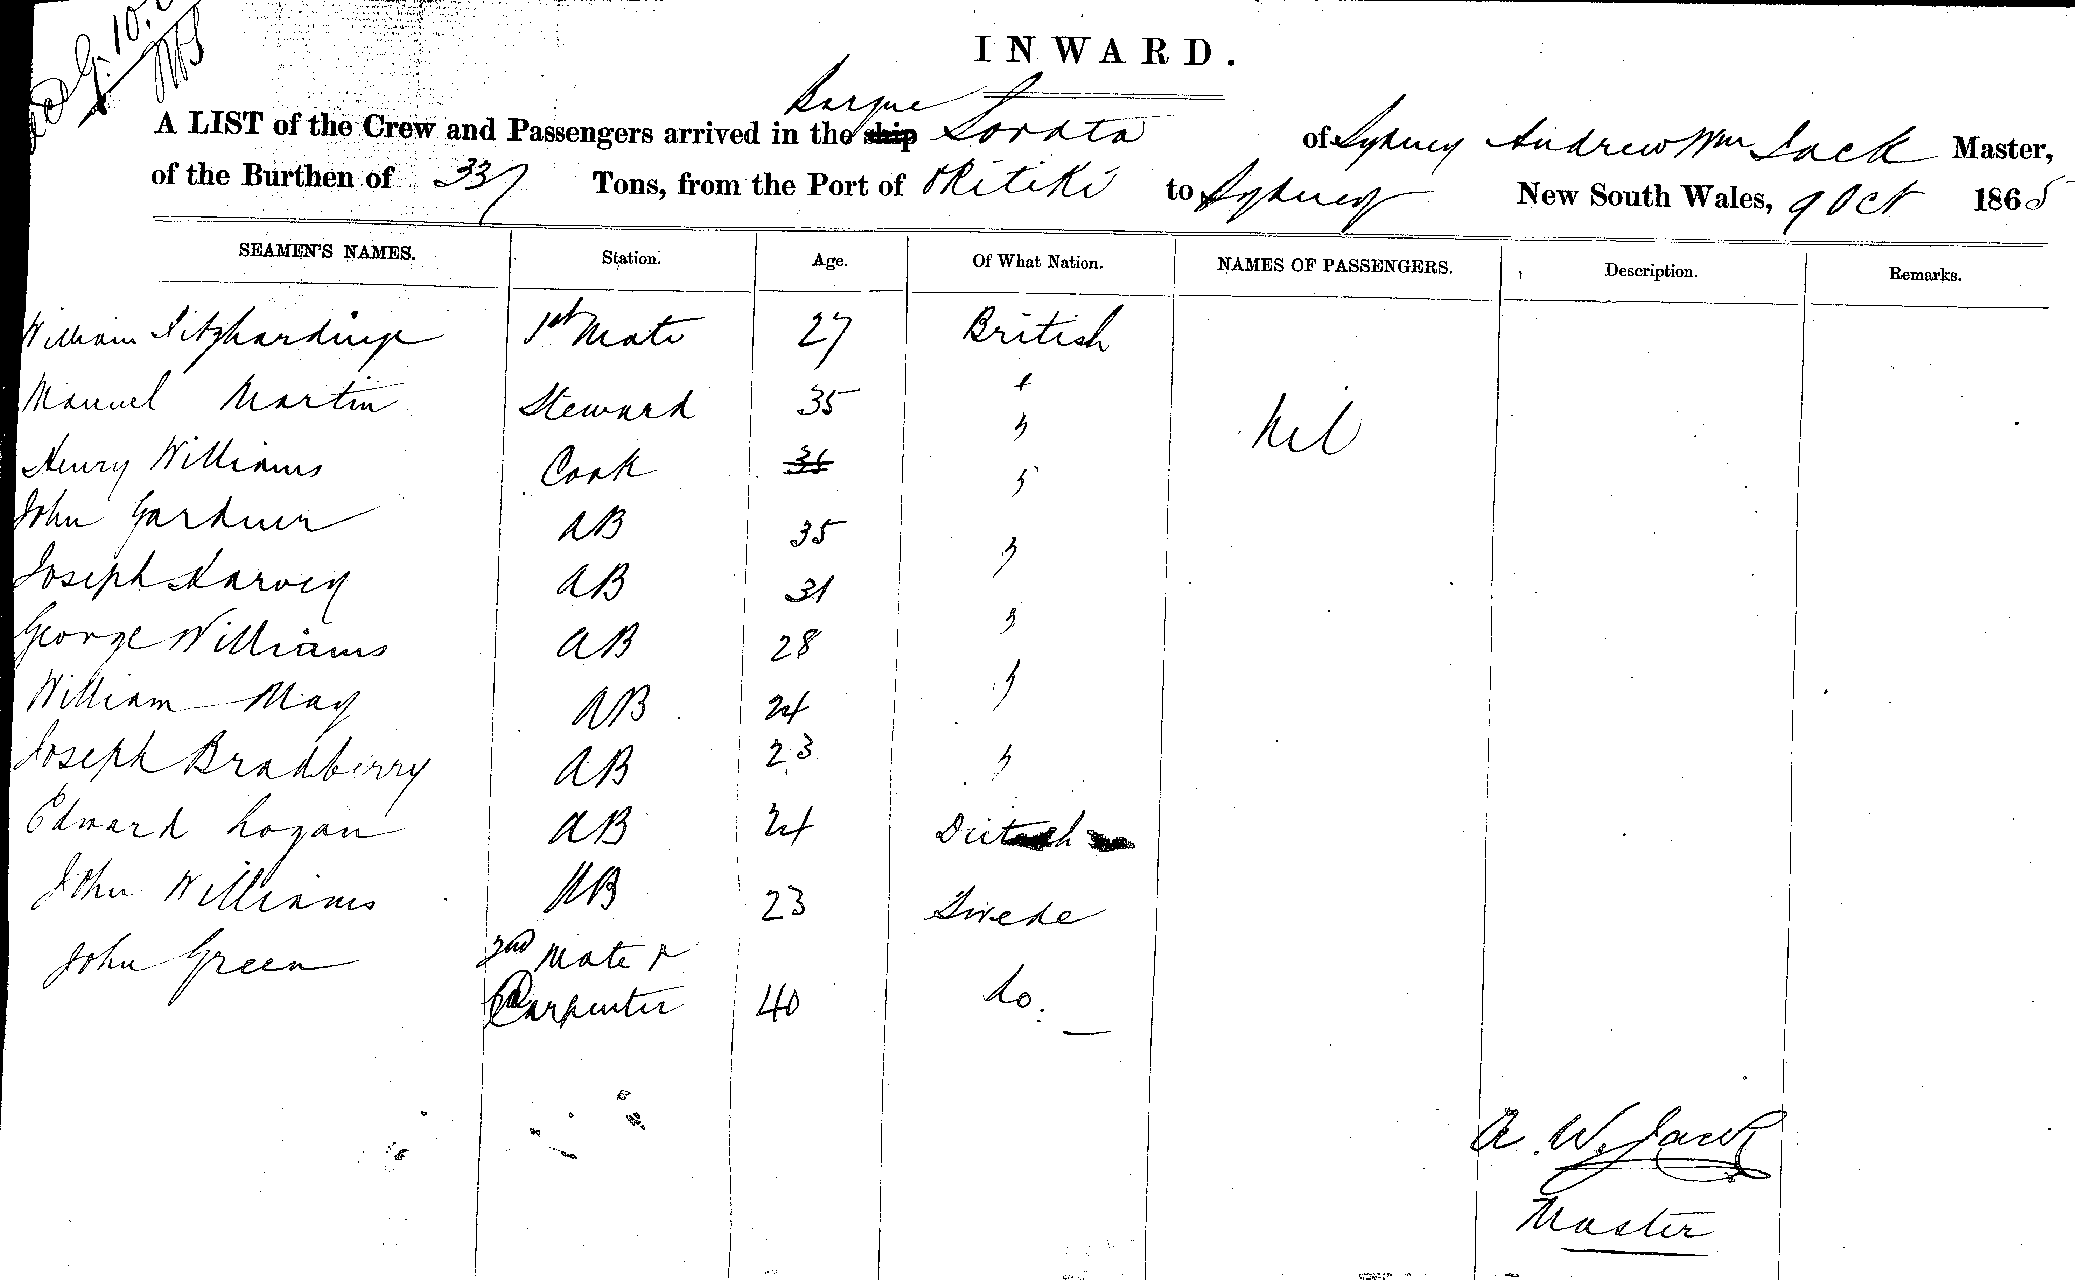 INWARD.
Barque
A LIST of the Crew and Passengers arrived in the ship Sorata of Sydney Andrew Wm Jack Master,
of the Burthen of 337 Tons, from the Port of Okitiki to Sydney New South Wales, 9 Oct 1865
SEAMEN'S NAMES. Station. Age. Of What Nation. NAMES OF PASSENGERS. Description. Remarks.
William Fitzhardinge 1st Mate 27 British
Manuel Martin Steward 35 " Nil
Henry Williams Cook 36 "
John Gardner AB 35 "
Joseph Harvey AB 31 "
George Williams AB 28 "
William May AB 24 "
Joseph Bradberry AB 23 "
Edward Logan AB 24
John Williams AB 23 Swede
John Green 2nd Mate &
Carpenter 40 do.
A. W. Jack
Master